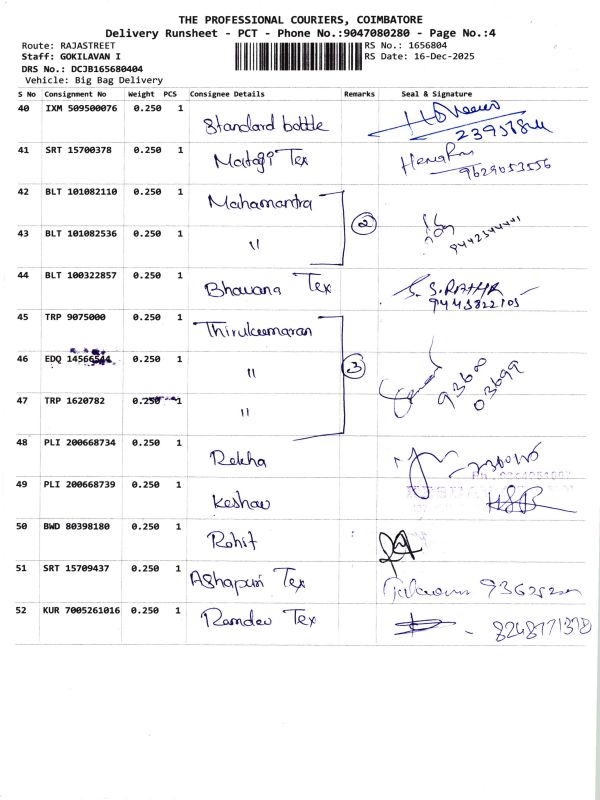 THE PROFESSIONAL COURIERS, COIMBATORE
Delivery Runsheet - PCT - Phone No.:9047080280 - Page No.:4
Route: RAJASTREET RS No.: 1656804
Staff: GOKILAVAN I RS Date: 16-Dec-2025
DRS No.: DCJB165680404
Vehicle: Big Bag Delivery
S No Consignment No Weight PCS Consignee Details Remarks Seal & Signature
40 IXM 509500076 0.250 1 Standard bottle
41 SRT 15700378 0.250 1 Matagi Tex 9629053556
42 BLT 101082110 0.250 1 Mahamantra
② 
43 BLT 101082536 0.250 1 "
44 BLT 100322857 0.250 1 Bhavana Tex S.RATHR
9443822105
45 TRP 9075000 0.250 1 Thirukumaran
46 EDQ 14566544 0.250 1 " ③ 9360
03699
47 TRP 1620782 0.250 1 "
48 PLI 200668734 0.250 1 Rekha
49 PLI 200668739 0.250 1 Keshav
50 BWD 80398180 0.250 1 Rohit
51 SRT 15709437 0.250 1 Ashapuri Tex
52 KUR 7005261016 0.250 1 Ramdev Tex 8248771378